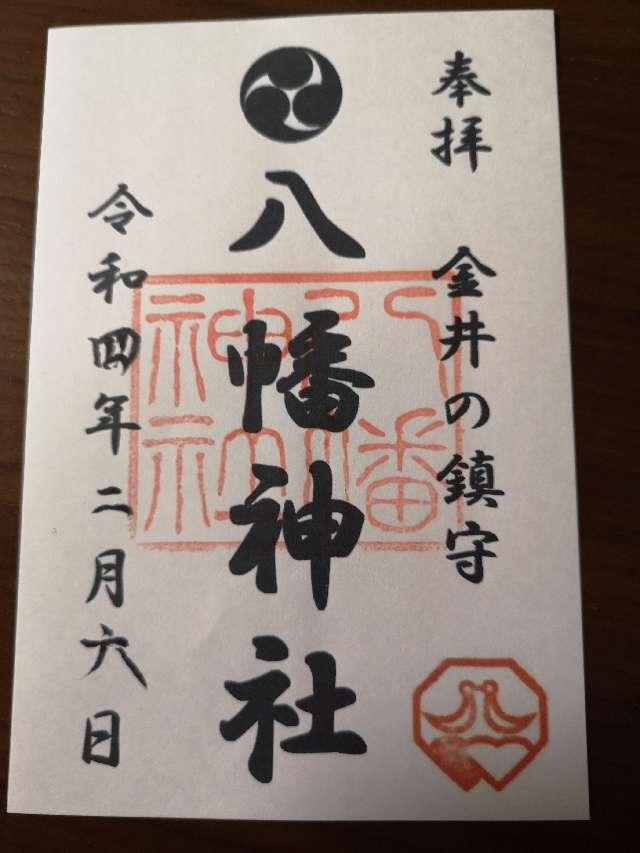 奉拝 金井の鎮守
八幡神社
八幡神社
令和四年二月六日